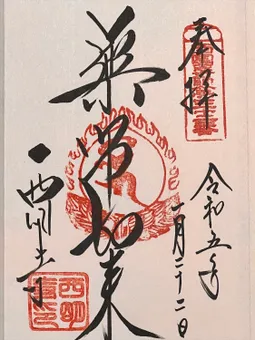 奉拝
令和五年
一月二十二日
薬師如来
西明寺
西明
寺印